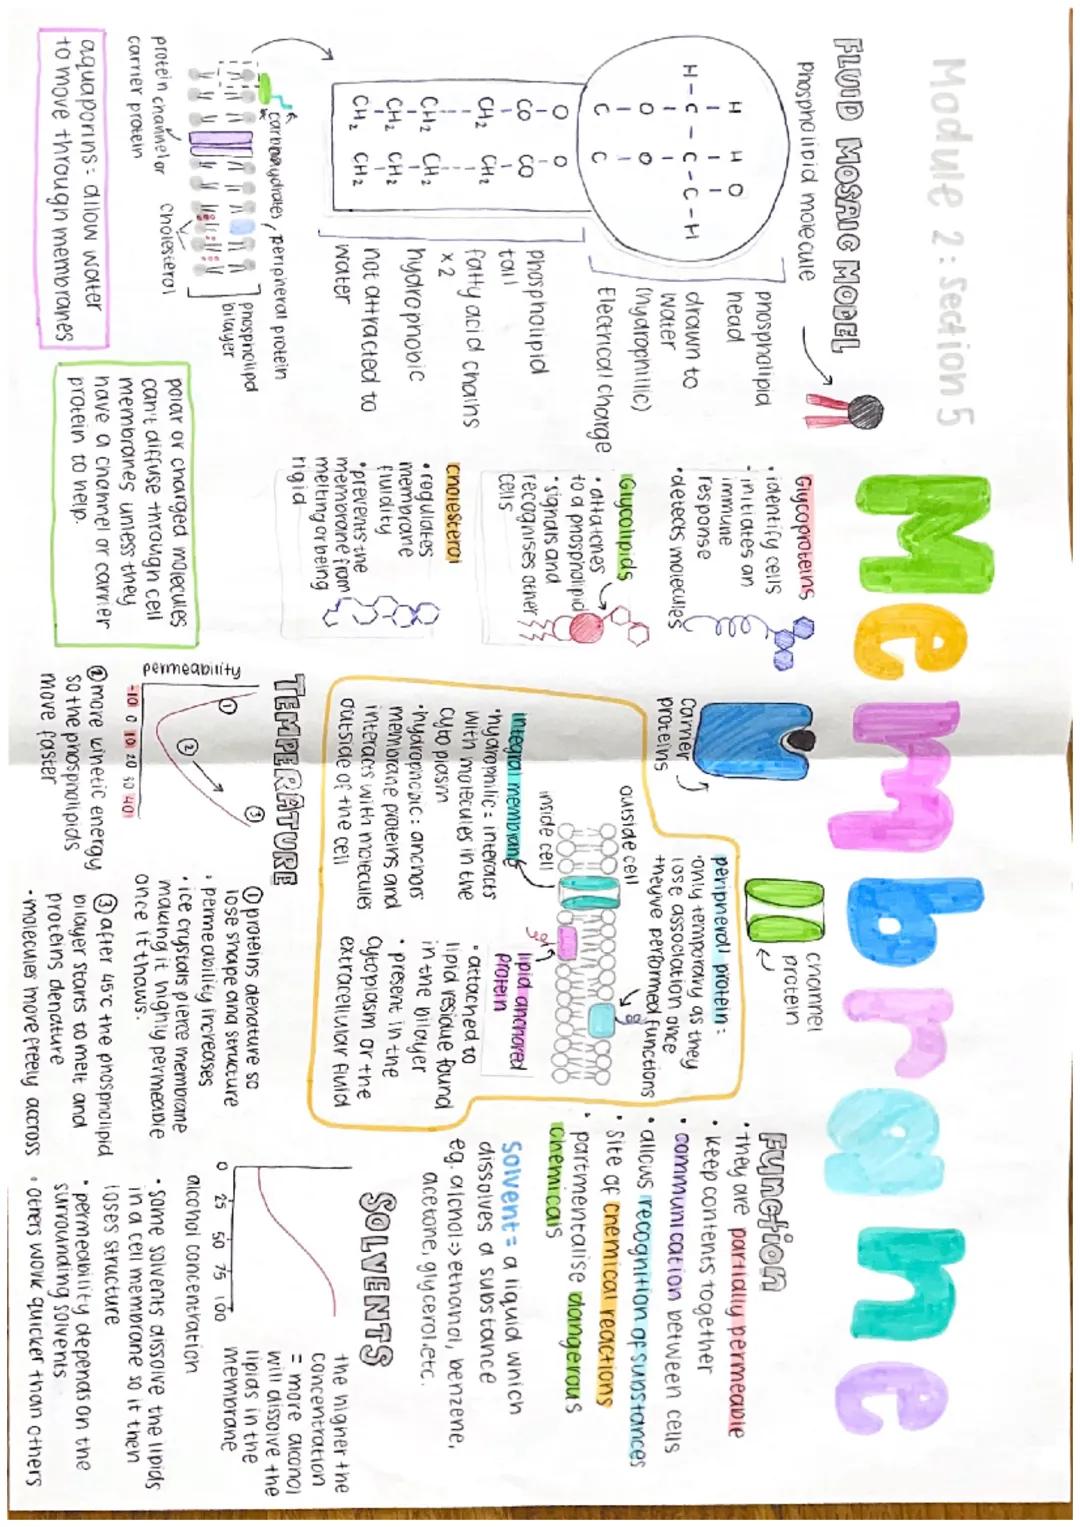 Module 2: Section 5
Membrane
FLUID MOSAIC MODEL
phospholipid molecule
phospholipid
head
drawn to
water
(hydrophillic)
Electrical charge
H H O
H - C - C - C - H
O O
C C
O O
CO CO
CH2 CH2
CH2 CH2
CH2 CH2
CH2 CH2
phospholipid
tail
fatty acid chains
x 2
hydrophobic
not attracted to
water
carbohydrates, peripheral protein
phospholipid
bilayer
protein channel or
carrier protein
cholesteral
aquaporins = allow water
to move through membranes
polar or charged molecules
can't diffuse through cell
membranes unless they
have a channel or carrier
protein to help.
Glycoproteins
• identify cells
• initiates an
immune
response
• detects molecules
Glycolipids
• attatches
to a phospholipid
• signals and
recognises other
cells
cholesteral
• regulates
membrane
fluidity
• prevents the
membrane from
melting or being
rigid
carrier
proteins
channel
protein
peripherall protein:
• only temporary as they
lose association once
they've performed functions
outside cell
inside cell
integral membrane
• hydrophilic = interacts
with molecules in the
cytoplasm
• hydrophobic: anchors
membrane proteins and
interacts with molecules
outside of the cell
lipid anchored
protein
• attached to
lipid residue found
in the bilayer
• present in the
cytoplasm or the
extracellular fluid
TEMPERATURE
permeability
① ② ③
-10 0 10 20 30 40
① proteins denature so
lose shape and structure
• permeability increases
• ice crystals pierce membrane
making it highly permeable
once it thaws.
② more kinetic energy
so the phospholipids
move faster
③ after 45°c the phospholipid
bilayer starts to melt and
proteins denature
• molecules move freely accross
Function
• they are partially permeable
• keep contents together
• communication between cells
• allows recognition of substances
• site of chemical reactions
• partmentalise dangerous
chemicals
Solvent = a liquid which
dissolves a substance
eg. alchol => ethanol, benzene,
acetone, glycerol etc.
SOLVENTS
0 25 50 75 100
alcohol concentration
the higher the
concentration
= more alcohol
will dissolve the
lipids in the
membrane
• some solvents dissolve the lipids
in a cell membrane so it then
loses structure
• permeability depends on the
surrounding solvents
• others work quicker than others